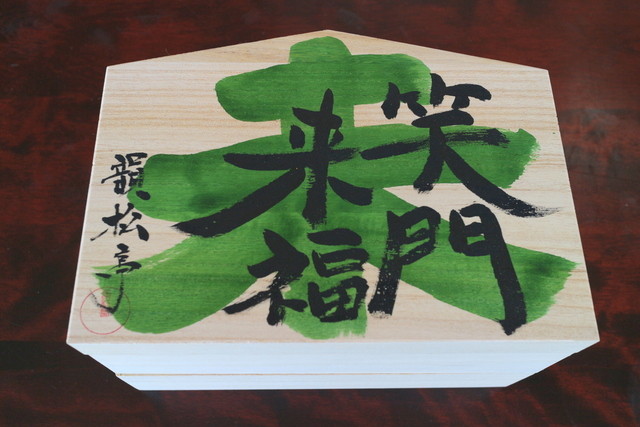 笑門
来福
韻松亭